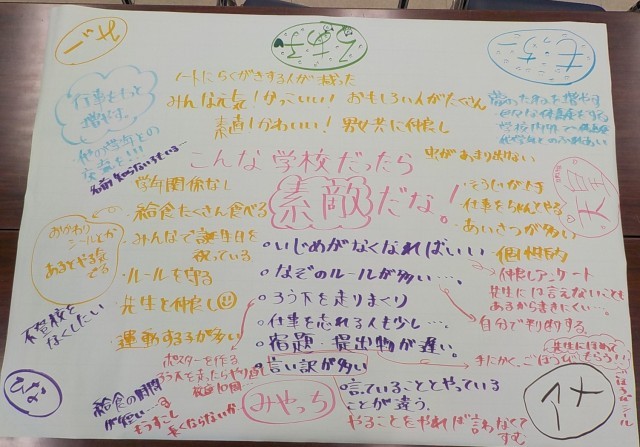 ノートにらくがきする人が減った
みんな元気！かっこいい！おもしろい人がたくさん
素直！かわいい！男女共に仲良し
行事をもっと
増やす。
他の学年との
交流を!!!
名前知らない子もいる…
こんな学校だったら
素敵だな！
虫があまり出ない
学年関係なし
給食たくさん食べる
みんなで誕生日を
祝っている
ルールを守る
先生と仲良し
運動する子が多い
おかわり
シールとか
あるとやる気
でる
不登校を
なくしたい
そうじができる
仕事をちゃんとやる
あいさつが多い
個性的
いじめがなくなればいい
なぞのルールが多い…。
ろう下を走りまくり
仕事を忘れる人も少し…。
宿題・提出物が遅い。
言い訳が多い
言ていることとやっている
ことが違う。
やることをやれば言わなくて
すむ
仲良しアンケート
先生には言えないことも
あるから書きにくい…。
自分で判断する。
先生にほめて
もらう!!
手にかく。ごほうび
ごほうびシール
ポスターを作る
ろう下を走ったらやり直し
給食の時間
が短い…
もう少し
長くならないか
みやっち
ひな
アメ
もっちー